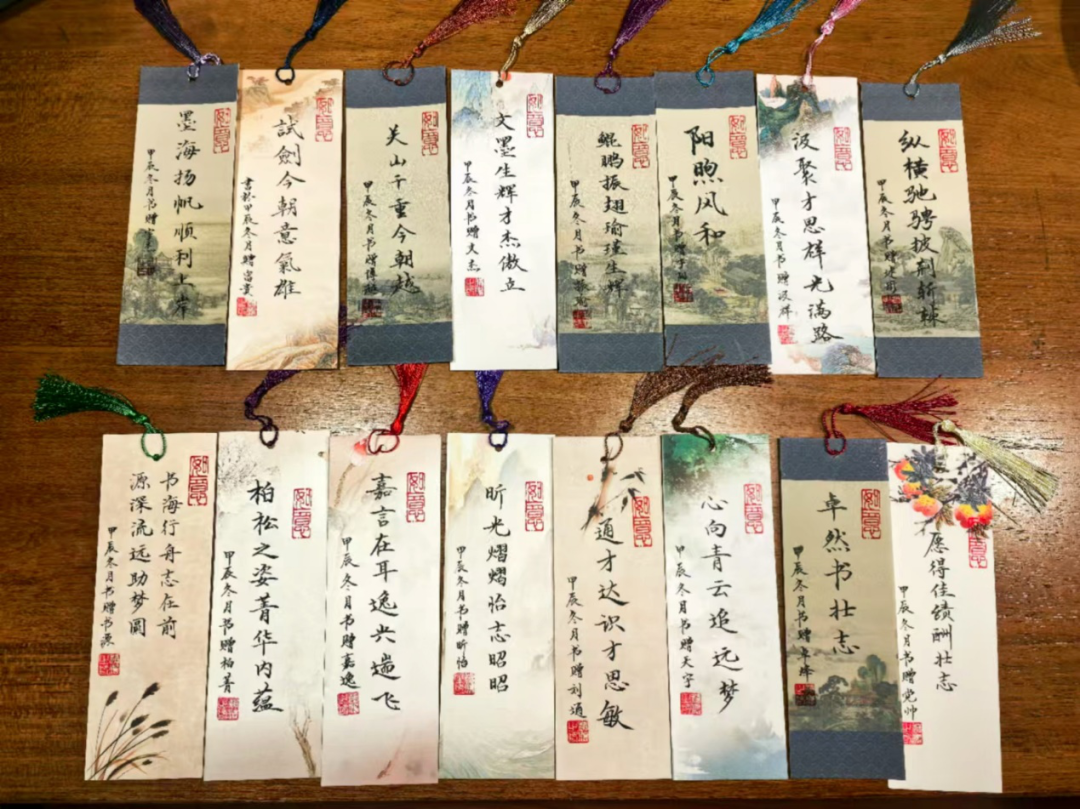 如意
墨海扬帆順利上岸
甲辰冬月书赠
如意
試劍今朝意氣雄
甲辰冬月赠富貴
如意
关山千重今朝越
甲辰冬月书赠
如意
文墨生辉才杰傲立
甲辰冬月书赠文杰
如意
鲲鹏振翅瑜瑾生辉
甲辰冬月书赠
如意
阳煦风和
甲辰冬月书赠
如意
汲聚才思群光满路
甲辰冬月书赠
如意
纵横驰骋披荆斩棘
甲辰冬月书赠
如意
书海行舟志在前
源深流远助梦圆
甲辰冬月书赠书源
如意
柏松之姿菁华内蕴
甲辰冬月书赠柏菁
如意
嘉言在耳逸兴遄飞
甲辰冬月书赠嘉逸
如意
昕光熠熠怡志昭昭
甲辰冬月书赠昕怡
如意
通才达识才思敏
甲辰冬月书赠利通
如意
心向青云追远梦
甲辰冬月书赠天宇
如意
卓然书壮志
甲辰冬月书赠卓
如意
愿得佳绩酬壮志
甲辰冬月书赠党帅